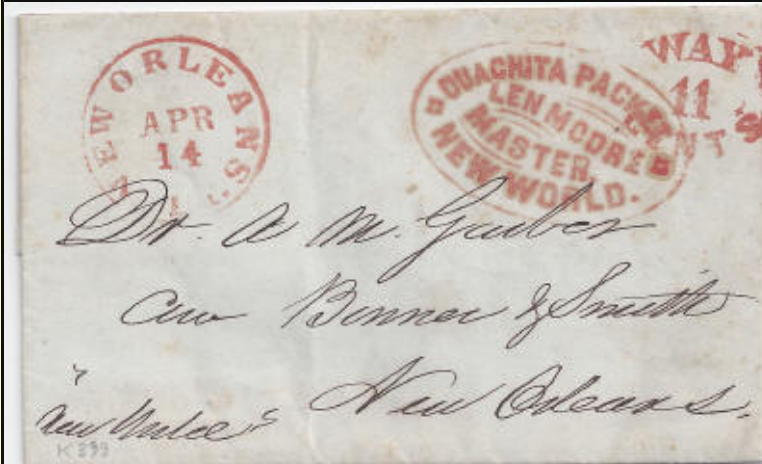 NEW ORLEANS
APR
14
OUACHITA PACKET
LEN MOORE
MASTER
NEW WORLD.
WAY
11
CENTS
Dr. A M. Guiber
Care Bonner & Smith
New Orleans.
"New World"
K 399